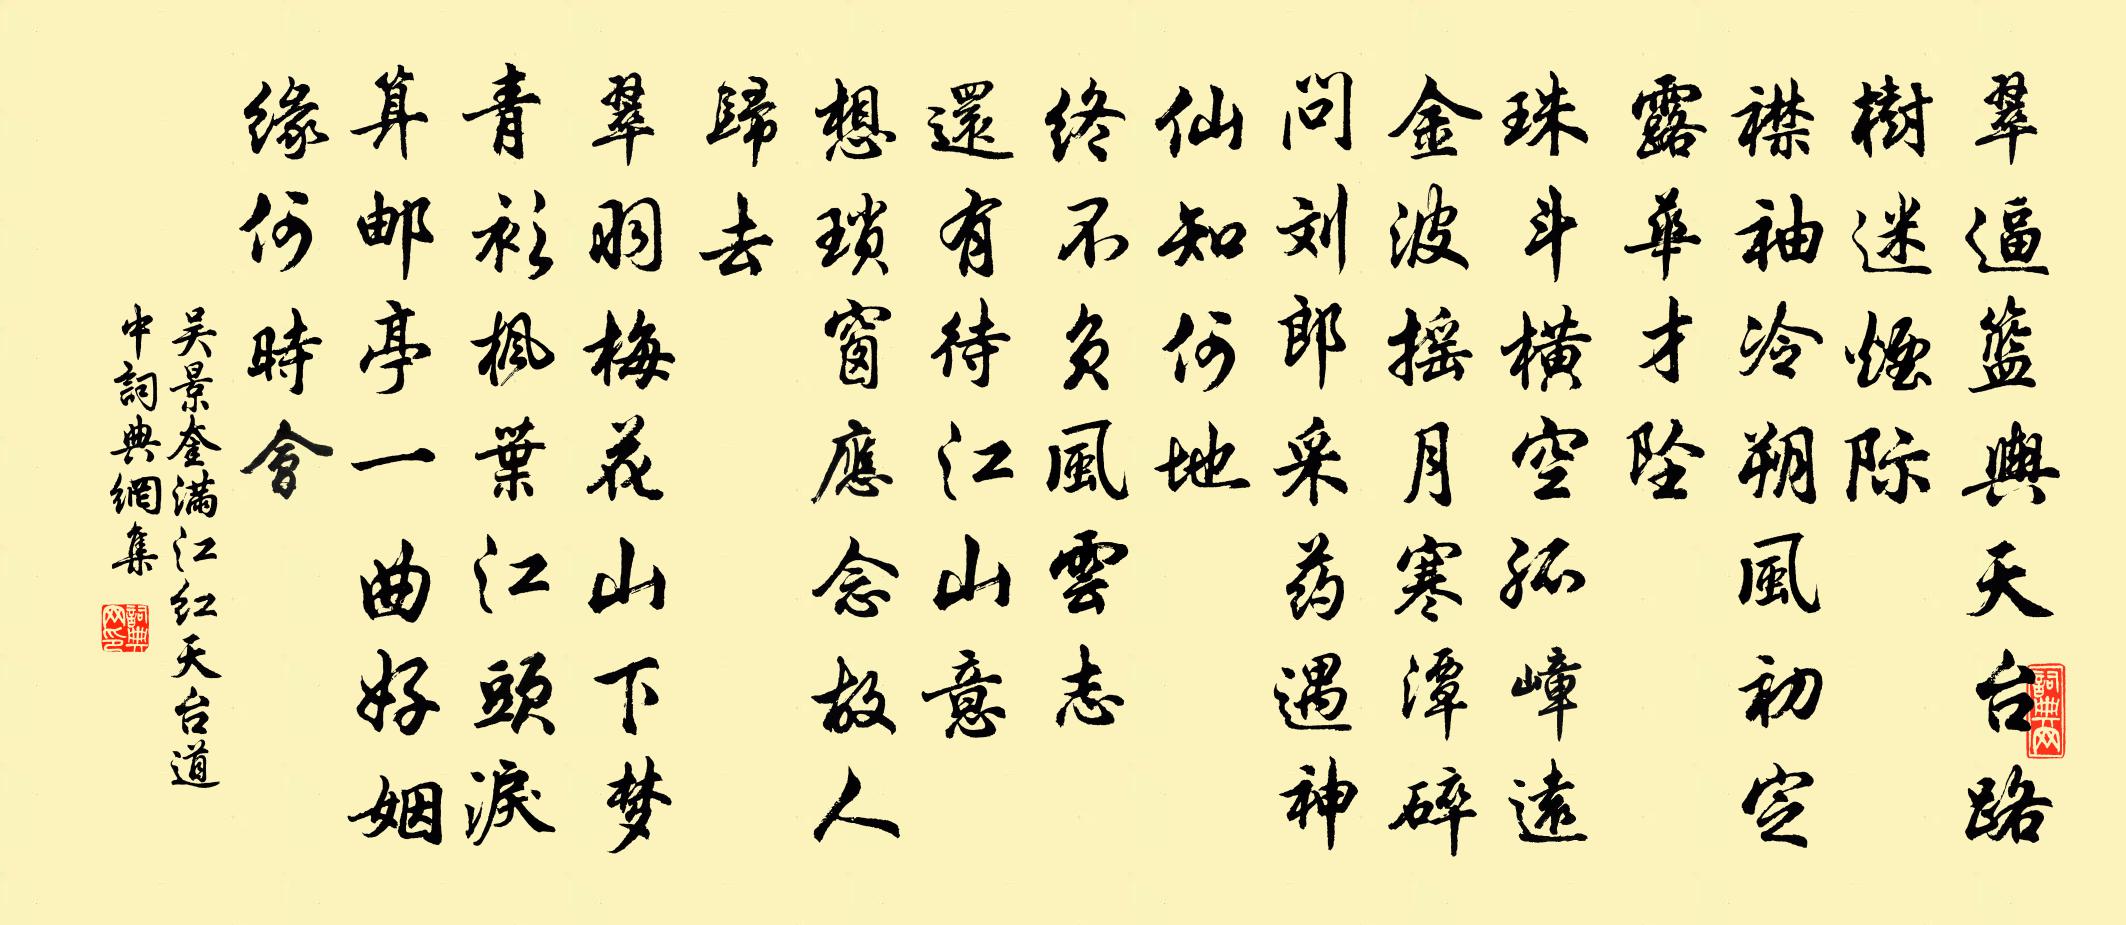 翠逼篮舆天台路
樹迷煙际
襟袖冷朔風初定
露華才坠
珠斗横空孤嶂遠
金波摇月寒潭碎
问刘郎采药遇神
仙知何地
终不负風雲志
還有待江山意
想琐窗應念故人
歸去
翠羽梅花山下梦
青衫楓葉江頭淚
算邮亭一曲好姻
缘何時會
吴景奎满江红天台道
中詞典網集
詞典网
詞典网印